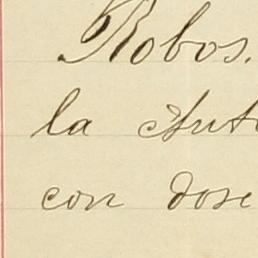 Robos.
la Auto
con dose